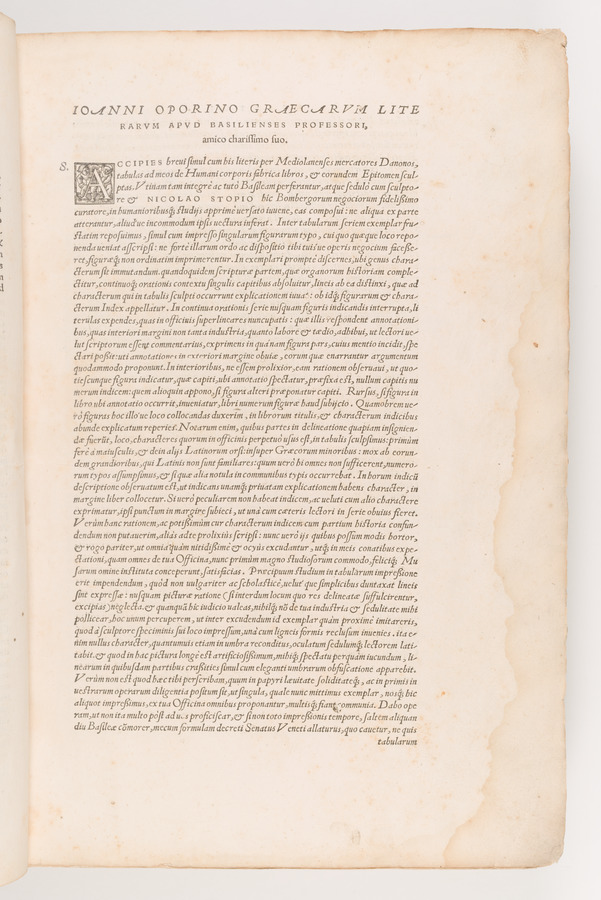 IOANNI OPORINO GRAECARVM LITE
RARVM APVD BASILIENSES PROFESSORI,
amico chariſſimo ſuo.
S.
ACCIPIES breui ſimul cum his literis per Mediolanenſes mercatores Danonos,
tabulas ad meos de Humani corporis fabrica libros, & eorundem Epitomen ſcul-
ptas. Vtinam tam integrè ac tutò Baſileam perferantur, atque ſedulò cum ſculpto-
re & NICOLAO STOPIO hic Bombergorum negociorum fideliſſimo
curatore, in humanioribusq́; ſtudijs apprimè uerſato iuuene, eas compoſui: ne aliqua ex parte
atterantur, aliud'ue incommodum ipſis uectura inferat. Inter tabularum ſeriem exemplar fru-
ſtatim repoſuimus, ſimul cum impreſſo ſingularum figurarum typo, cui quo quæque loco repo-
nenda ueniat aſcripſi: ne fortè illarum ordo ac diſpoſitio tibi tuis'ue operis negocium faceſſe-
ret, figuræq́; non ordinatim imprimerentur. In exemplari promptè diſcernes, ubi genus chara-
cterum ſit immutandum. quandoquidem ſcripturæ partem, quæ organorum hiſtoriam comple-
ctitur, continuoq́; orationis contextu ſingulis capitibus abſoluitur, lineis ab ea diſtinxi, quæ ad
characterum qui in tabulis ſculpti occurrunt explicationem iuuat: ob idq́; figurarum & chara-
cterum Index appellatur. In continua orationis ſerie nuſquam figuris indicandis interrupta, li
terulas expendes, quas in officinis ſuperlineares nuncupatis: quæ illis reſpondent annotationi-
bus, quas interiori margini non tanta induſtria, quanto labore & tædio, adhibui, ut lectori ue-
lut ſcriptorum eſſent commentarius, exprimens in qua'nam figura pars, cuius mentio incidit, ſpe
ctari poſſit: uti annotationes in exteriori margine obuiæ, eorum quæ enarrantur argumentum
quodammodo proponunt. In interioribus, ne eſſem prolixior, eam rationem obſeruaui, ut quo-
tieſcunque figura indicatur, quæ capiti, ubi annotatio ſpectatur, præfixa eſt, nullum capitis nu
merum indicem: quem alioquin appono, ſi figura alteri præponatur capiti. Rurſus, ſi figura in
libro ubi annotatio occurrit, inueniatur, libri numerum figuræ haud ſubijcio. Quamobrem ue-
rò figuras hoc illo'ue loco collocandas duxerim, in librorum titulis, & characterum indicibus
abunde explicatum reperies. Notarum enim, quibus partes in delineatione quapiam inſignien-
dæ fuerūt, loco, characteres quorum in officinis perpetuò uſus eſt, in tabulis ſculpſimus: primùm
ferè à maiuſculis, & dein alijs Latinorum orſi: inſuper Græcorum minoribus: mox ab eorun-
dem grandioribus, qui Latinis non ſunt familiares: quum uerò hi omnes non ſufficerent, numero-
rum typos aſſumpſimus, & ſi quæ alia notula in communibus typis occurrebat. In horum indicū
deſcriptione obſeruatum eſt, ut indicans unamq́; priuatam explicationem habens character, in
margine liber collocetur. Si uerò peculiarem non habeat indicem, ac ueluti cum alio charactere
exprimatur, ipſi punctum in margine ſubieci, ut unà cum cæteris lectori in ſerie obuius fieret.
Verùm hanc rationem, ac potiſſimùm cur characterum indicem cum partium hiſtoria confun-
dendum non putauerim, aliàs adte prolixiùs ſcripſi: nunc uerò ijs quibus poſſum modis hortor,
& rogo pariter, ut omnia quàm nitidiſſimè & ocyùs excudantur, utq́; in meis conatibus expe-
ctationi, quam omnes de tua Officina, nunc primùm magno ſtudioſorum commodo, feliciq́; Mu
ſarum omine inſtituta conceperunt, ſatisfacias. Præcipuum ſtudium in tabularum impreſſione
erit impendendum, quòd non uulgariter ac ſcholaſticè, uelut'que ſimplicibus duntaxat lineis
ſint expreſſæ: nuſquam picturæ ratione (ſi interdum locum quo res delineatæ ſuffulcirentur,
excipias) neglecta. & quanquā hîc iudicio ualeas, nihilq́; nō de tua induſtria & ſedulitate mihi
pollicear, hoc unum percuperem, ut inter excudendum id exemplar quàm proximè imitareris,
quod à ſculptore ſpeciminis ſui loco impreſſum, unà cum ligneis formis recluſum inuenies. ita e-
nim nullus character, quantumuis etiam in umbra reconditus, oculatum ſedulumq́; lectorem lati-
tabit. & quod in hac pictura longè eſt artificioſiſſimum, mihiq́; ſpectatu perquàm iucundum, li-
nearum in quibuſdam partibus craſſities ſimul cum eleganti umbrarum obfuſcatione apparebit.
Verùm non eſt quòd hæc tibi perſcribam, quum in papyri læuitate ſoliditateq́;, ac in primis in
ueſtrarum operarum diligentia poſitum ſit, ut ſingula, quale nunc mittimus exemplar, noſq́; hîc
aliquot impreſſimus, ex tua Officina omnibus proponantur, multisq́; fiant communia. Dabo ope
ram, ut non ita multo pòſt ad uos proficiſcar, & ſi non toto impreſſionis tempore, ſaltem aliquan
diu Baſileæ cōmorer, mecum formulam decreti Senatus Veneti allaturus, quo cauetur, ne quis
tabularum